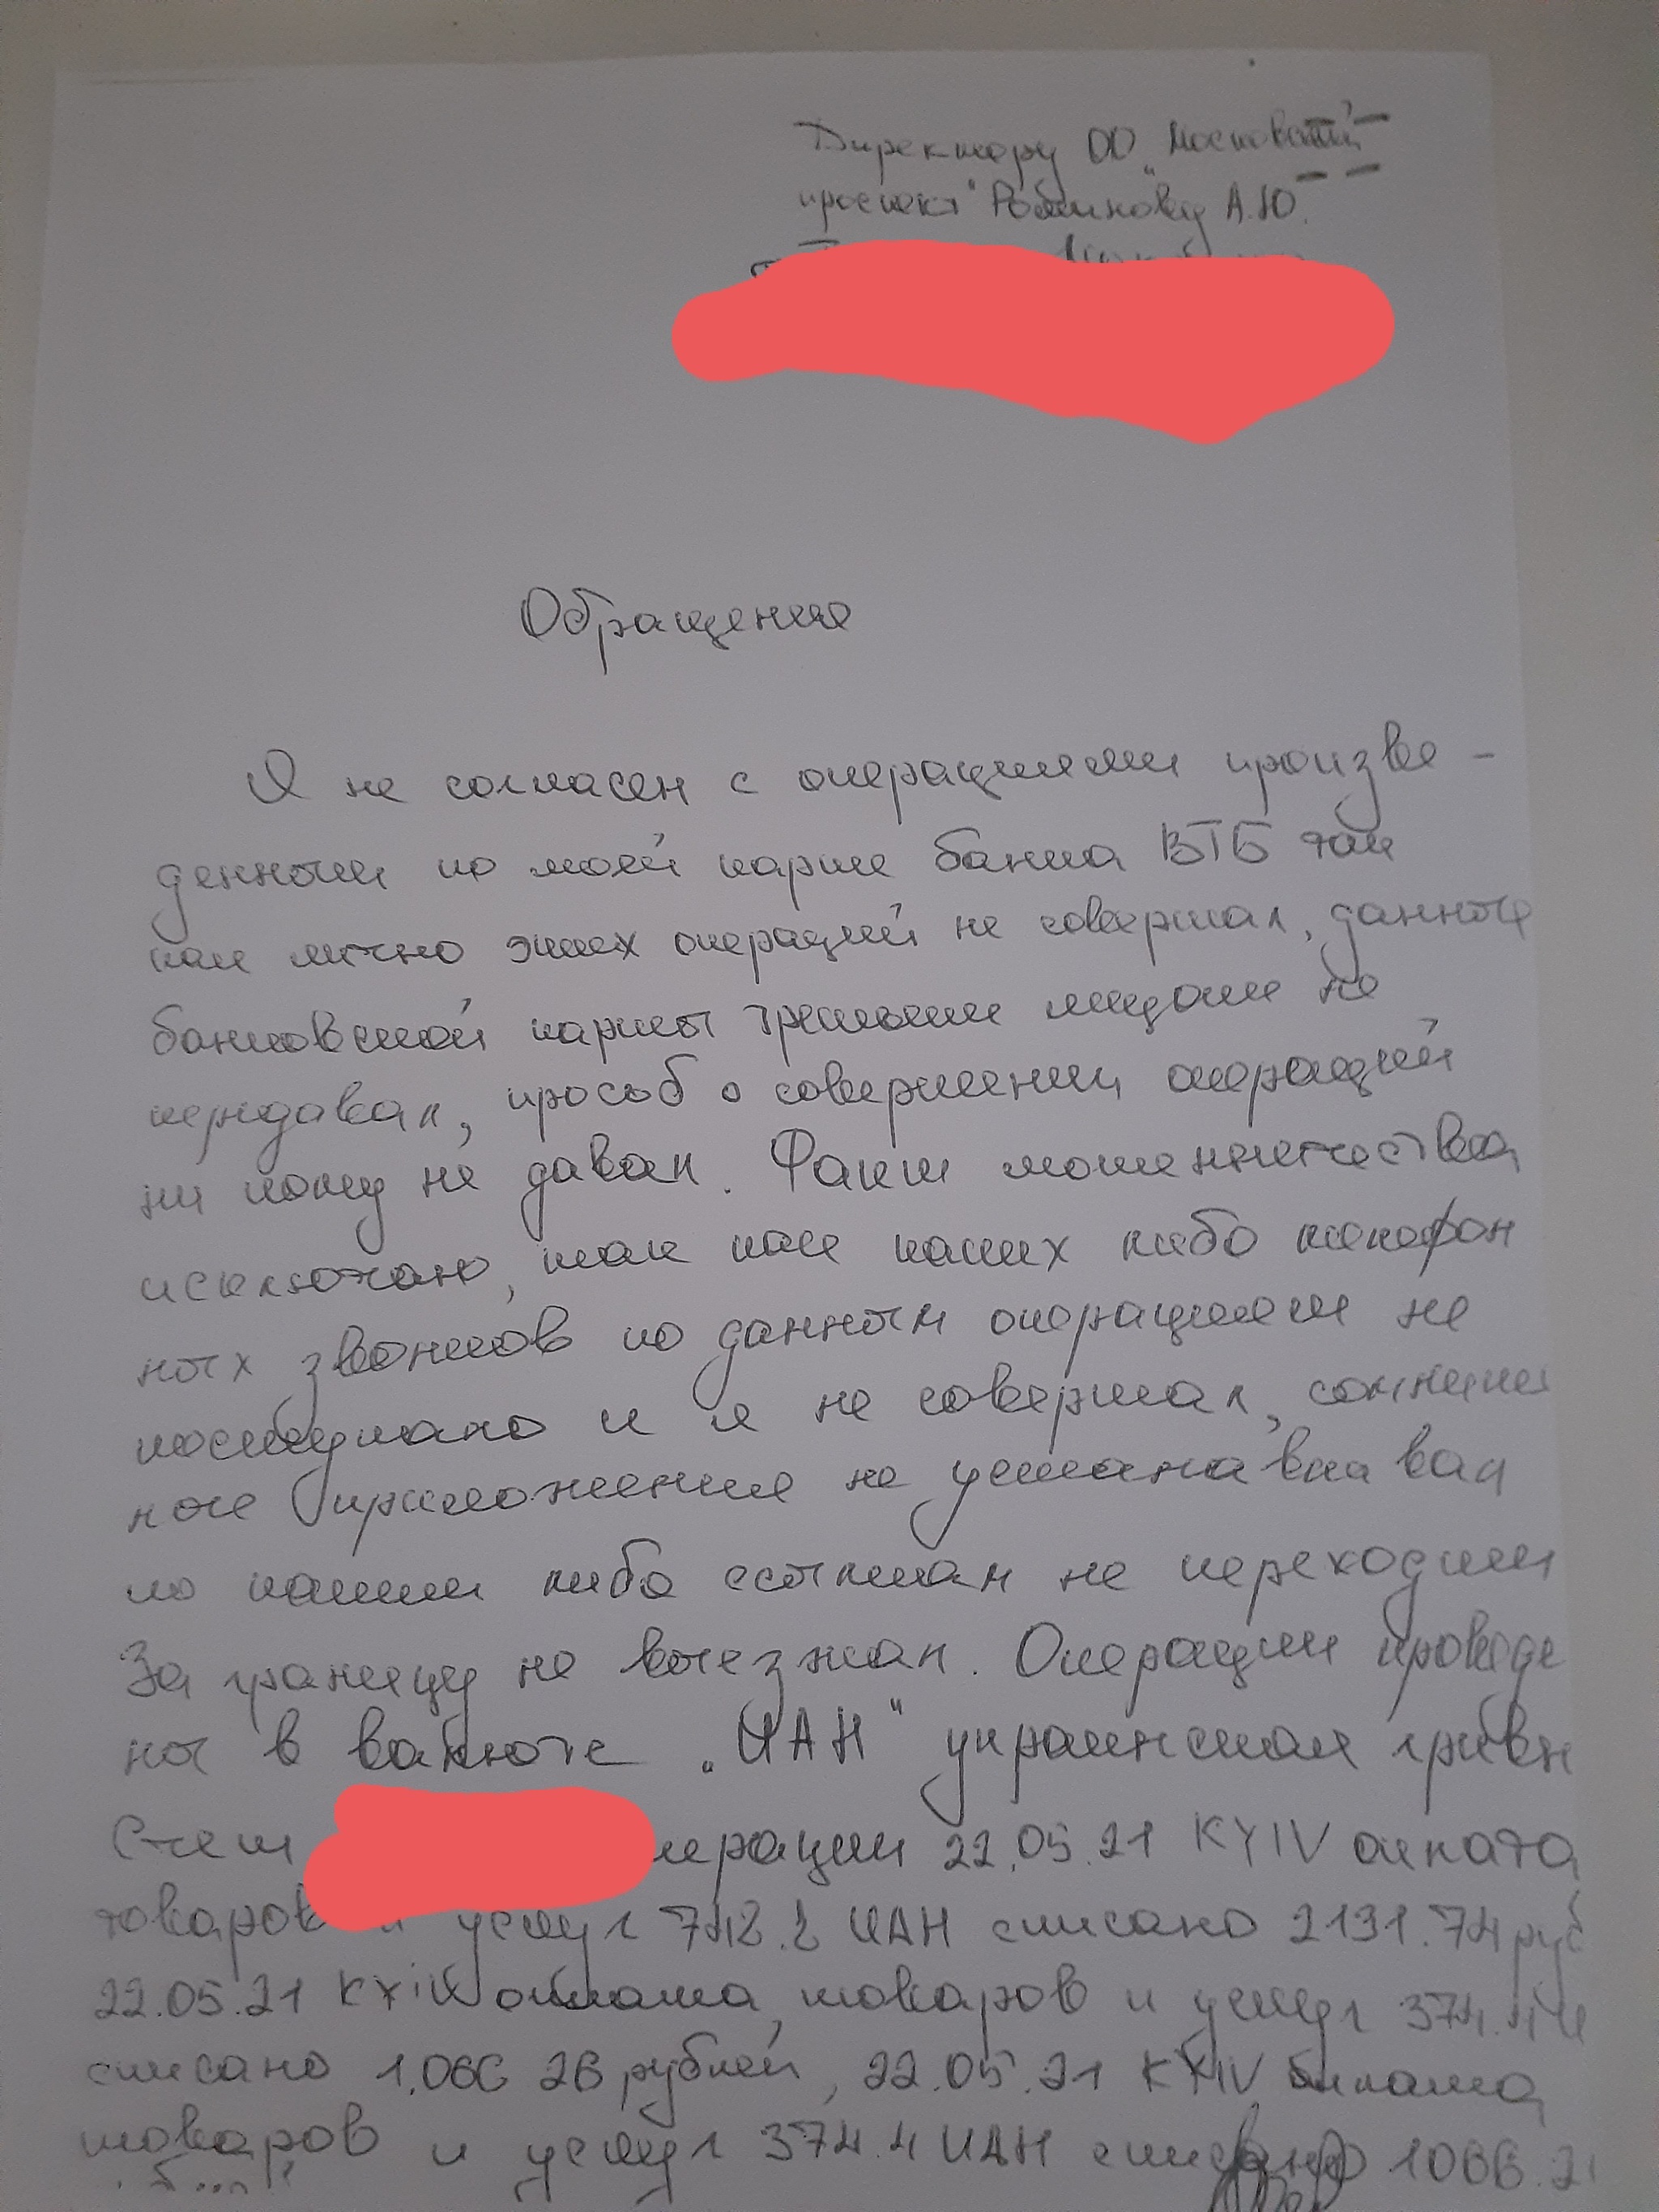 Директору ОО „Московский
проспект" А.Ю.
Обращение
Я не согласен с операциями произве-
денными по моей карте банка ВТБ так
как лично этих операций не совершал, данные
банковской карты третьим лицам не
передавал, просьб о совершении операций
ни кому не давал. Факт мошенничества
исключаю, так как каких либо телефон
ных звонков по данным операциям не
поступало и я не совершал, сомнитель
ные приложения не устанавливал
по каким либо ссылкам не переходил
За границу не выезжал. Операции проведе
ны в валюте „UAH" украинская гривн
Счет перации 22.05.21 KYIV оплата
товаров и услуг 748.8 UAH списано 2131.74 руб
22.05.21 KYIV оплата товаров и услуг 374.4
списано 1.066 26 рублей, 22.05.21 KYIV оплата
товаров и услуг 374.4 UAH списано 1066.2